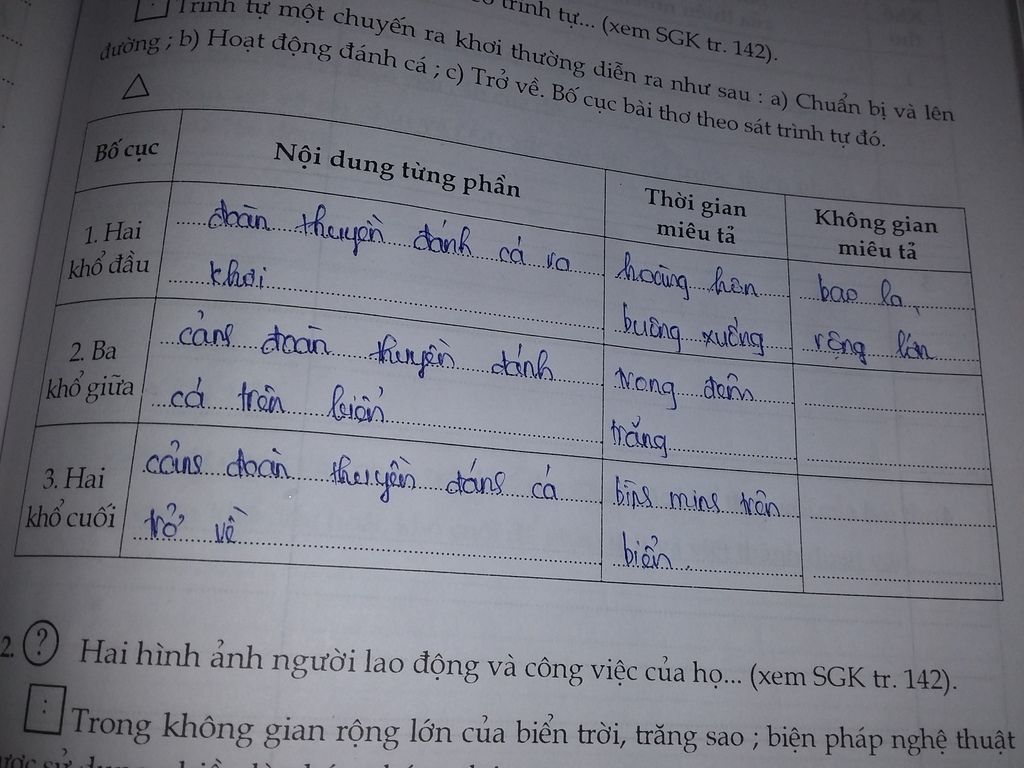 trình tự... (xem SGK tr. 142).
Trình tự một chuyến ra khơi thường diễn ra như sau : a) Chuẩn bị và lên
đường ; b) Hoạt động đánh cá ; c) Trở về. Bố cục bài thơ theo sát trình tự đó.
Bố cục
Nội dung từng phần
Thời gian
miêu tả
Không gian
miêu tả
1. Hai
khổ đầu
đoàn thuyền đánh cá ra
khơi
hoàng hôn
buông xuống
bao la,
rộng lớn
2. Ba
khổ giữa
cảng đoàn thuyền đánh
cá trên biển
trong đêm
trăng
3. Hai
khổ cuối
cảng đoàn thuyền đáng cá
trở về
bìng ming trên
biển.
2. ? Hai hình ảnh người lao động và công việc của họ... (xem SGK tr. 142).
: Trong không gian rộng lớn của biển trời, trăng sao ; biện pháp nghệ thuật